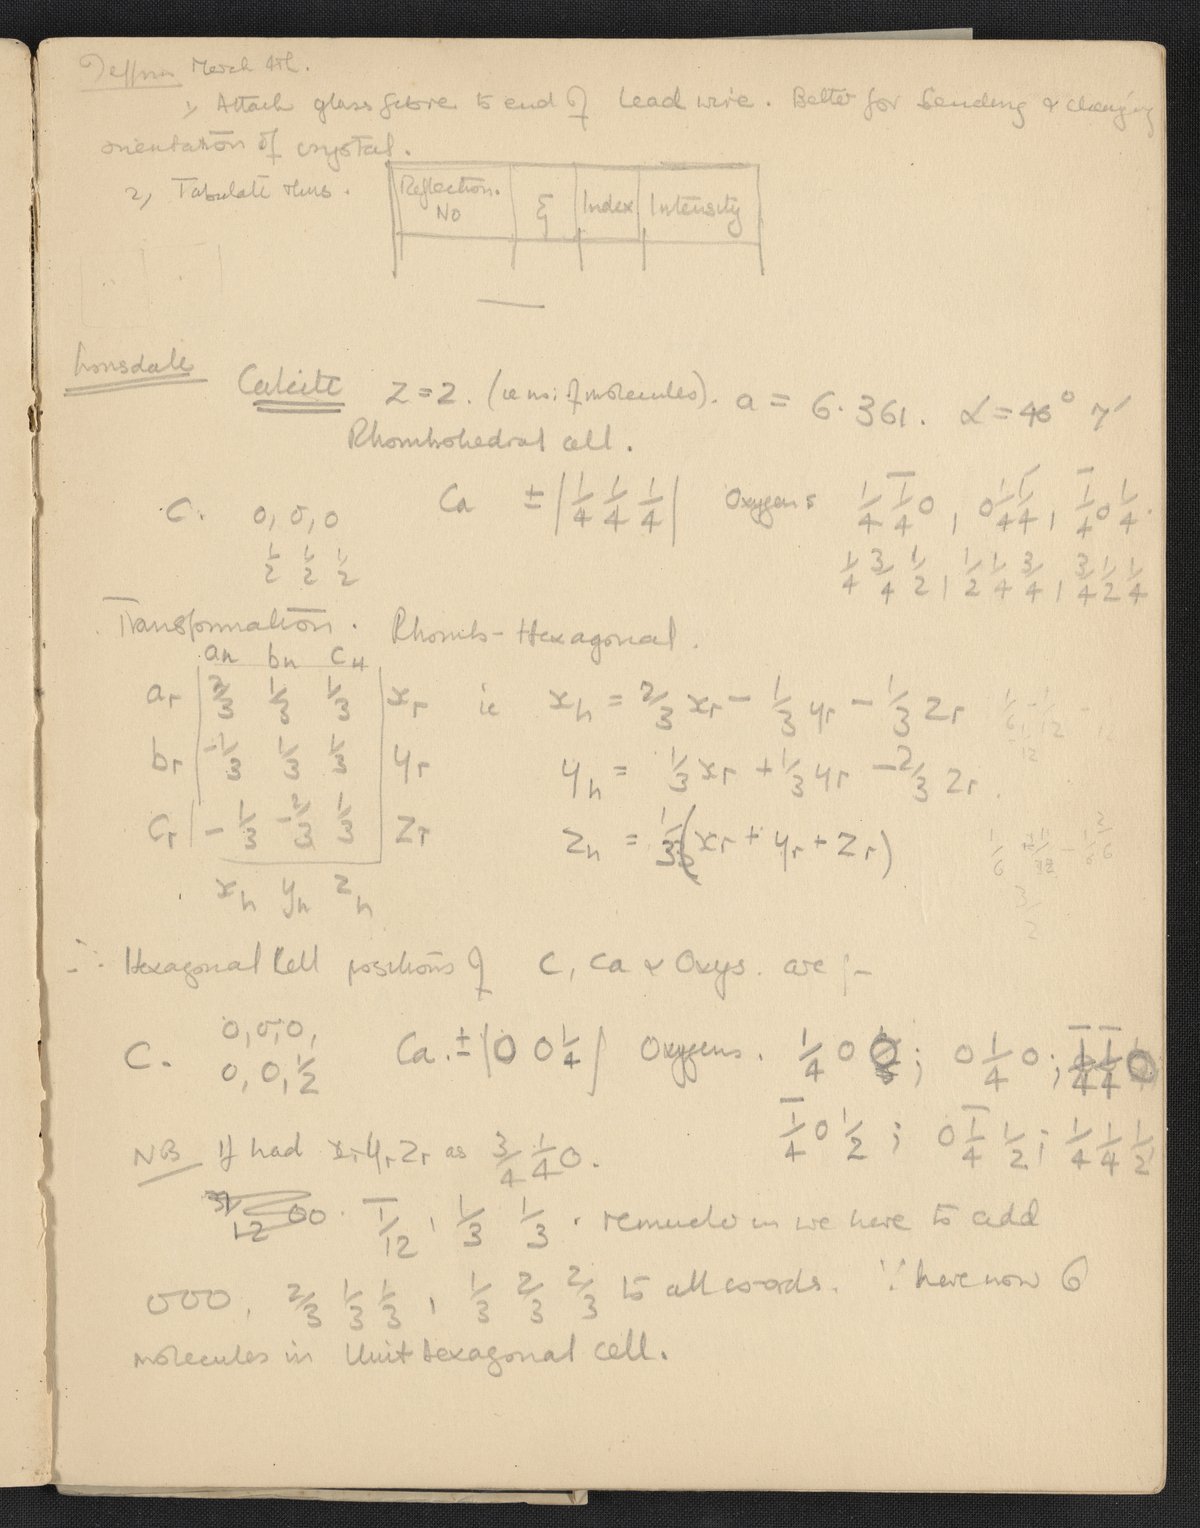 March 4th.
1, Attach glass fibre to end of lead wire. Better for bending & changing
orientation of crystal.
2, Tabulate thus.
Reflection. No | ξ | Index | Intensity
Lonsdale
Calcite Z=2. (ie no: of molecules). a = 6.361. α = 46° 7′
Rhombohedral cell.
C. 0, 0, 0 Ca ± |1/4 1/4 1/4| Oxygens 1/4 1̄/4 0, 0 1/4 1̄/4, 1̄/4 0 1/4.
1/2 1/2 1/2 1/4 3/4 1/2, 1/2 1/4 3/4, 3/4 1/2 1/4
Transformation. Rhomb-Hexagonal.
aH bH cH
ar 2/3 1/3 1/3 xr ie xh = 2/3 xr - 1/3 yr - 1/3 zr
br -1/3 1/3 1/3 yr yh = 1/3 xr + 1/3 yr - 2/3 zr.
cr -1/3 -2/3 1/3 zr zh = 1/3 (xr + yr + zr)
xh yh zh
∴ Hexagonal Cell positions of C, Ca & Oxys. are :-
C. 0, 0, 0, Ca. ± |0 0 1/4| Oxygens. 1/4 0 0; 0 1/4 0; 1̄/4 1̄/4 0
0, 0, 1/2 1̄/4 0 1/2; 0 1̄/4 1/2; 1/4 1/4 1/2
NB If had xr yr zr as 3/4 1/4 0.
00. 1̄/12, 1/3 1/3. we have to add
000, 2/3 1/3 1/3, 1/3 2/3 2/3 to all co-ords. ∵ have now 6
molecules in Unit Hexagonal cell.